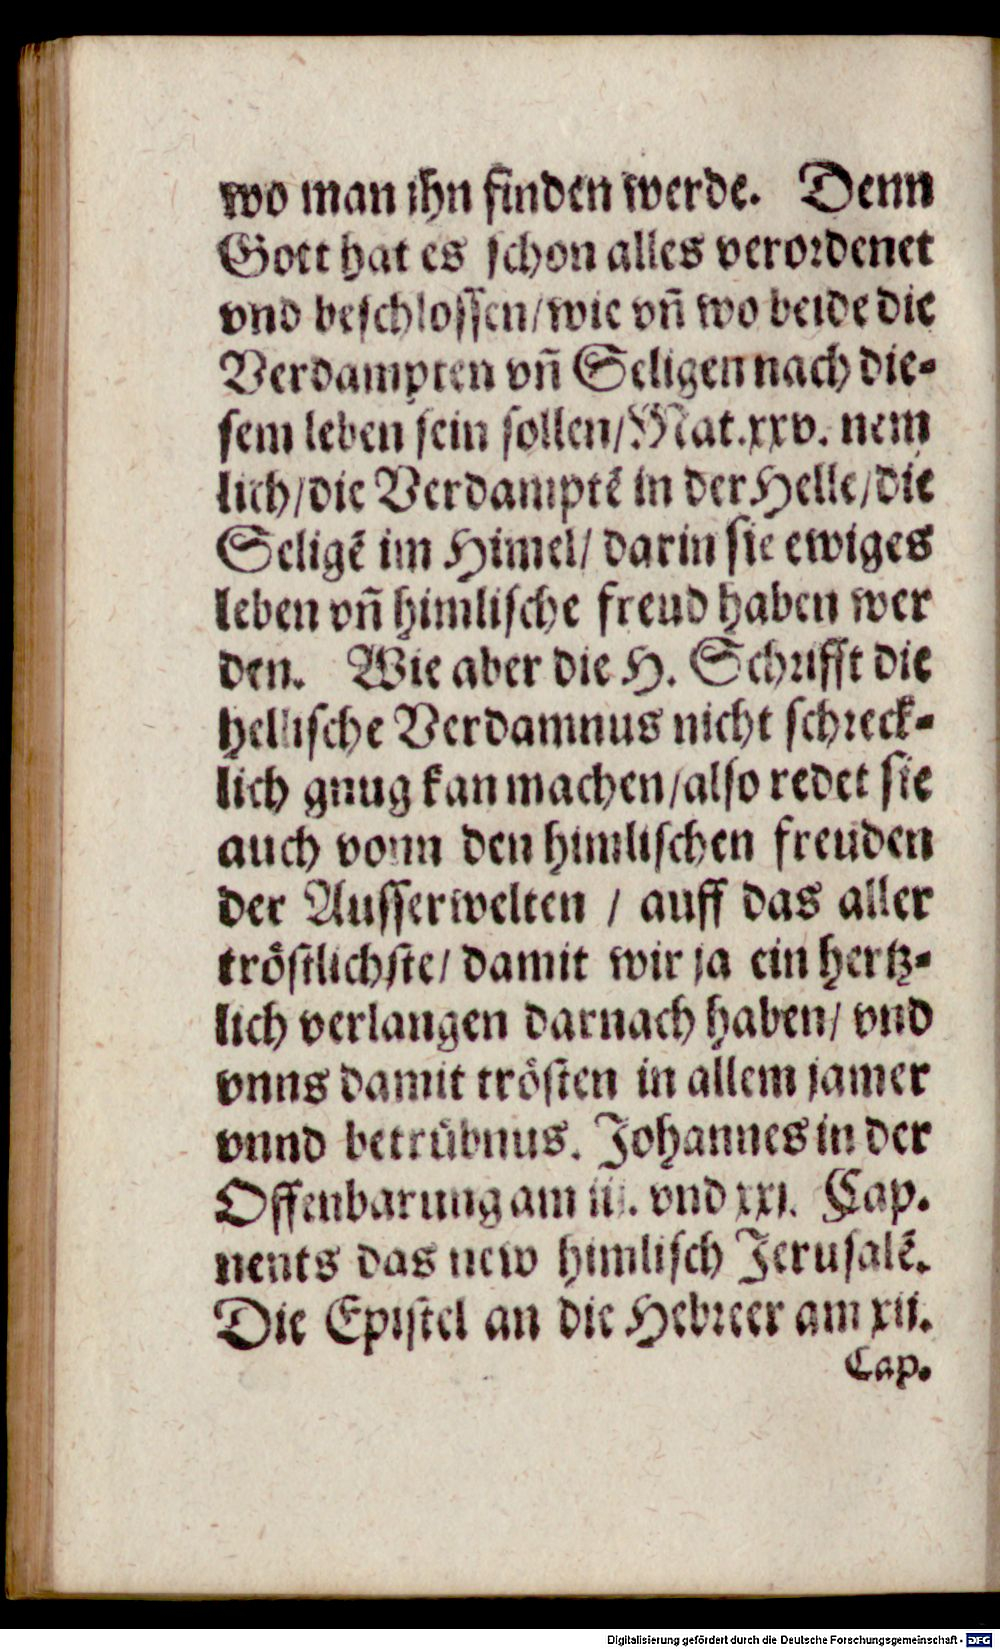 wo man ihn finden werde. Denn
Gott hat es schon alles verordenet
vnd beschlossen/wie vñ wo beide die
Verdampten vñ Seligen nach die-
sem leben sein sollen/Mat.xxv. nem
lich/die Verdamptẽ in der Helle/die
Seligẽ im Himel/ darin sie ewiges
leben vñ himlische freud haben wer
den. Wie aber die H. Schrifft die
hellische Verdamnus nicht schreck-
lich gnug kan machen/also redet sie
auch vonn den himlischen freuden
der Ausserwelten / auff das aller
tröstlichste/ damit wir ja ein hertz-
lich verlangen darnach haben/ vnd
vnns damit trösten in allem jamer
vnnd betrübnus. Johannes in der
Offenbarung am iij. vnd xxj. Cap.
nents das new himlisch Jerusalẽ.
Die Epistel an die Hebreer am xij.
Cap.
Digitalisierung gefördert durch die Deutsche Forschungsgemeinschaft - DFG